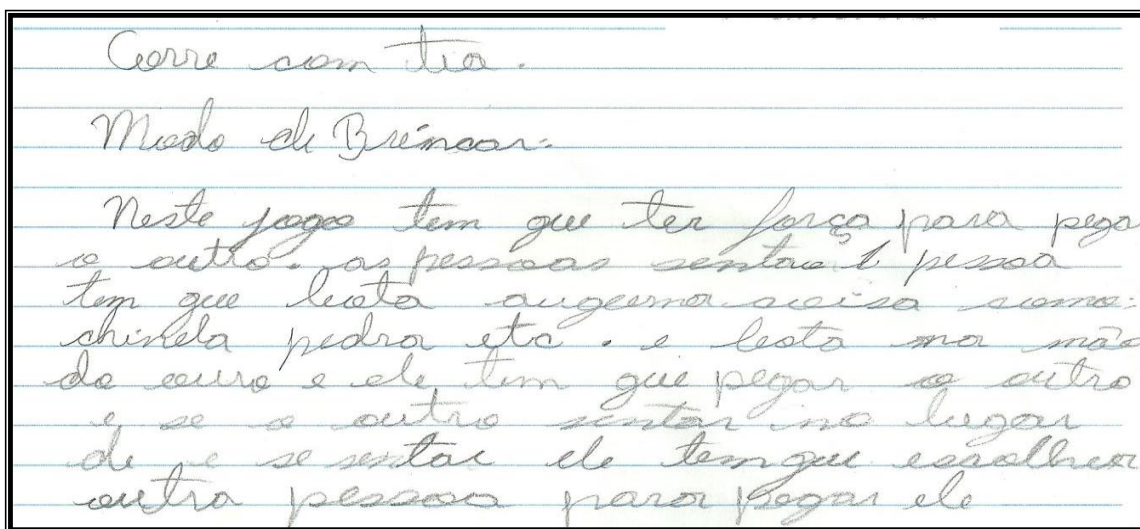 Corre com tia.
Modo de Brincar:
Neste jogo tem que ter força para pega
o outro. as pessoas sentao 1 pessoa
tem que bota auguma coisa como:
chinela pedra etc. e bota na mão
do ouro e ele tem que pegar o outro
e se o outro sentar no lugar
de e se sentar ele tem que escolher
outra pessoa para pegar ele